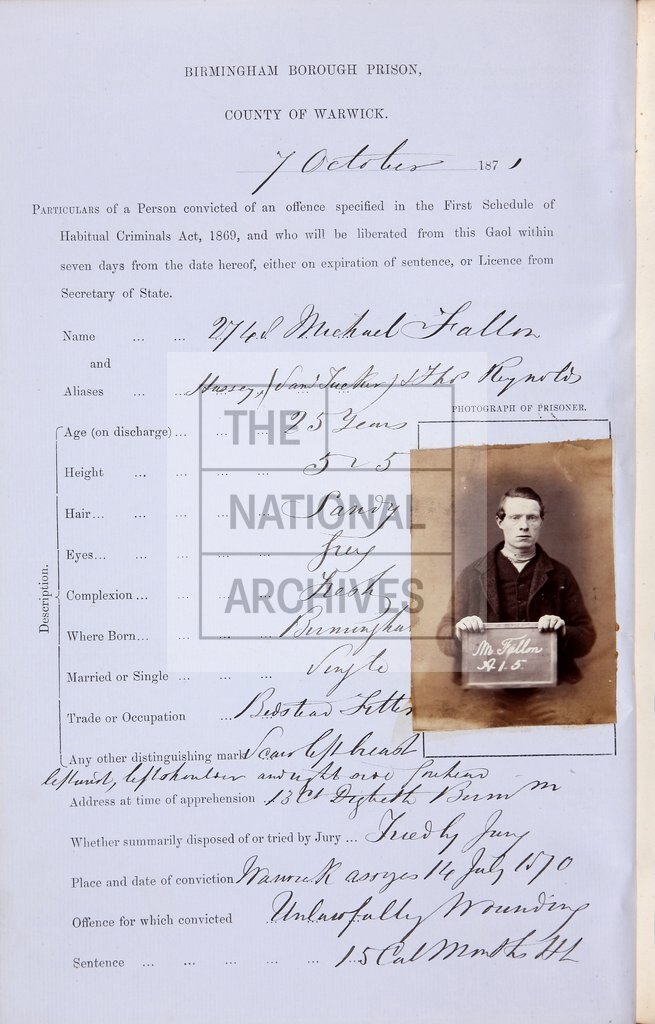 BIRMINGHAM BOROUGH PRISON,
COUNTY OF WARWICK.
7 October 1871
PARTICULARS of a Person convicted of an offence specified in the First Schedule of
Habitual Criminals Act, 1869, and who will be liberated from this Gaol within
seven days from the date hereof, either on expiration of sentence, or Licence from
Secretary of State.
Name ... ... Michael Fallon
and
Aliases ... ... Hussey, (Saml Tucker) & Thos Reynolds
PHOTOGRAPH OF PRISONER.
Description.
Age (on discharge) ... ... ... 25 Years
Height ... ... ... ... 5 " 5
Hair ... ... ... ... Sandy
Eyes ... ... ... ... Grey
Complexion ... ... ... ... Fresh
Where Born ... ... ... ... Birmingham
Married or Single ... ... ... Single
Trade or Occupation ... Bedstead Fitter
Any other distinguishing mark Scars left breast
left wrist, left shoulder and right side forehead
Address at time of apprehension 13 Ct Digbeth Birm m
Whether summarily disposed of or tried by Jury ... Tried by Jury
Place and date of conviction Warwick assizes 14 July 1870
Offence for which convicted ... Unlawfully Wounding
Sentence ... ... ... ... ... ... 15 Cal Months HL
M. Fallon
A.1.5
THE
NATIONAL
ARCHIVES